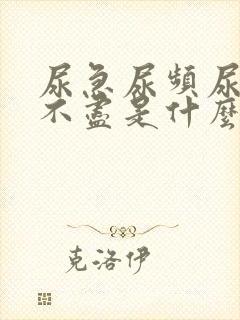 尿急尿頻尿
不盡是什麼
克洛伊